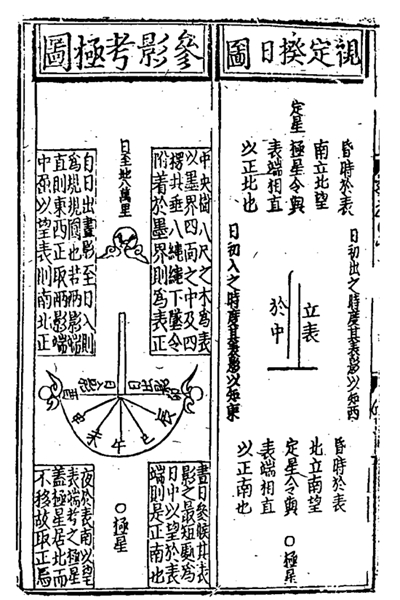 視定揆日圖
昏時於表
南立北望
定星
極星令與
表端相直
以正北也
日初出之時度其表影以知西
立表
於中
日初入之時度其表影以知東
昏時於表
北立南望
定星令與
表端相直
以正南也
○極星
參影考極圖
中央樹八尺之木為表
以墨界四面之中及四
楞共垂八繩繩下墜令
附着於墨界則為表正
日至地八萬里
自日出畫影至日入則
為規規圓也若兩影端
直則東西正取兩影端
中以望表則南北正
辰
巳
午
未
申
晝日參候其表
影之最短處為
日中以望於表
端則是正南也
○極星
夜於表南以望
表端考之極星
蓋極星居北而
不移故取正焉